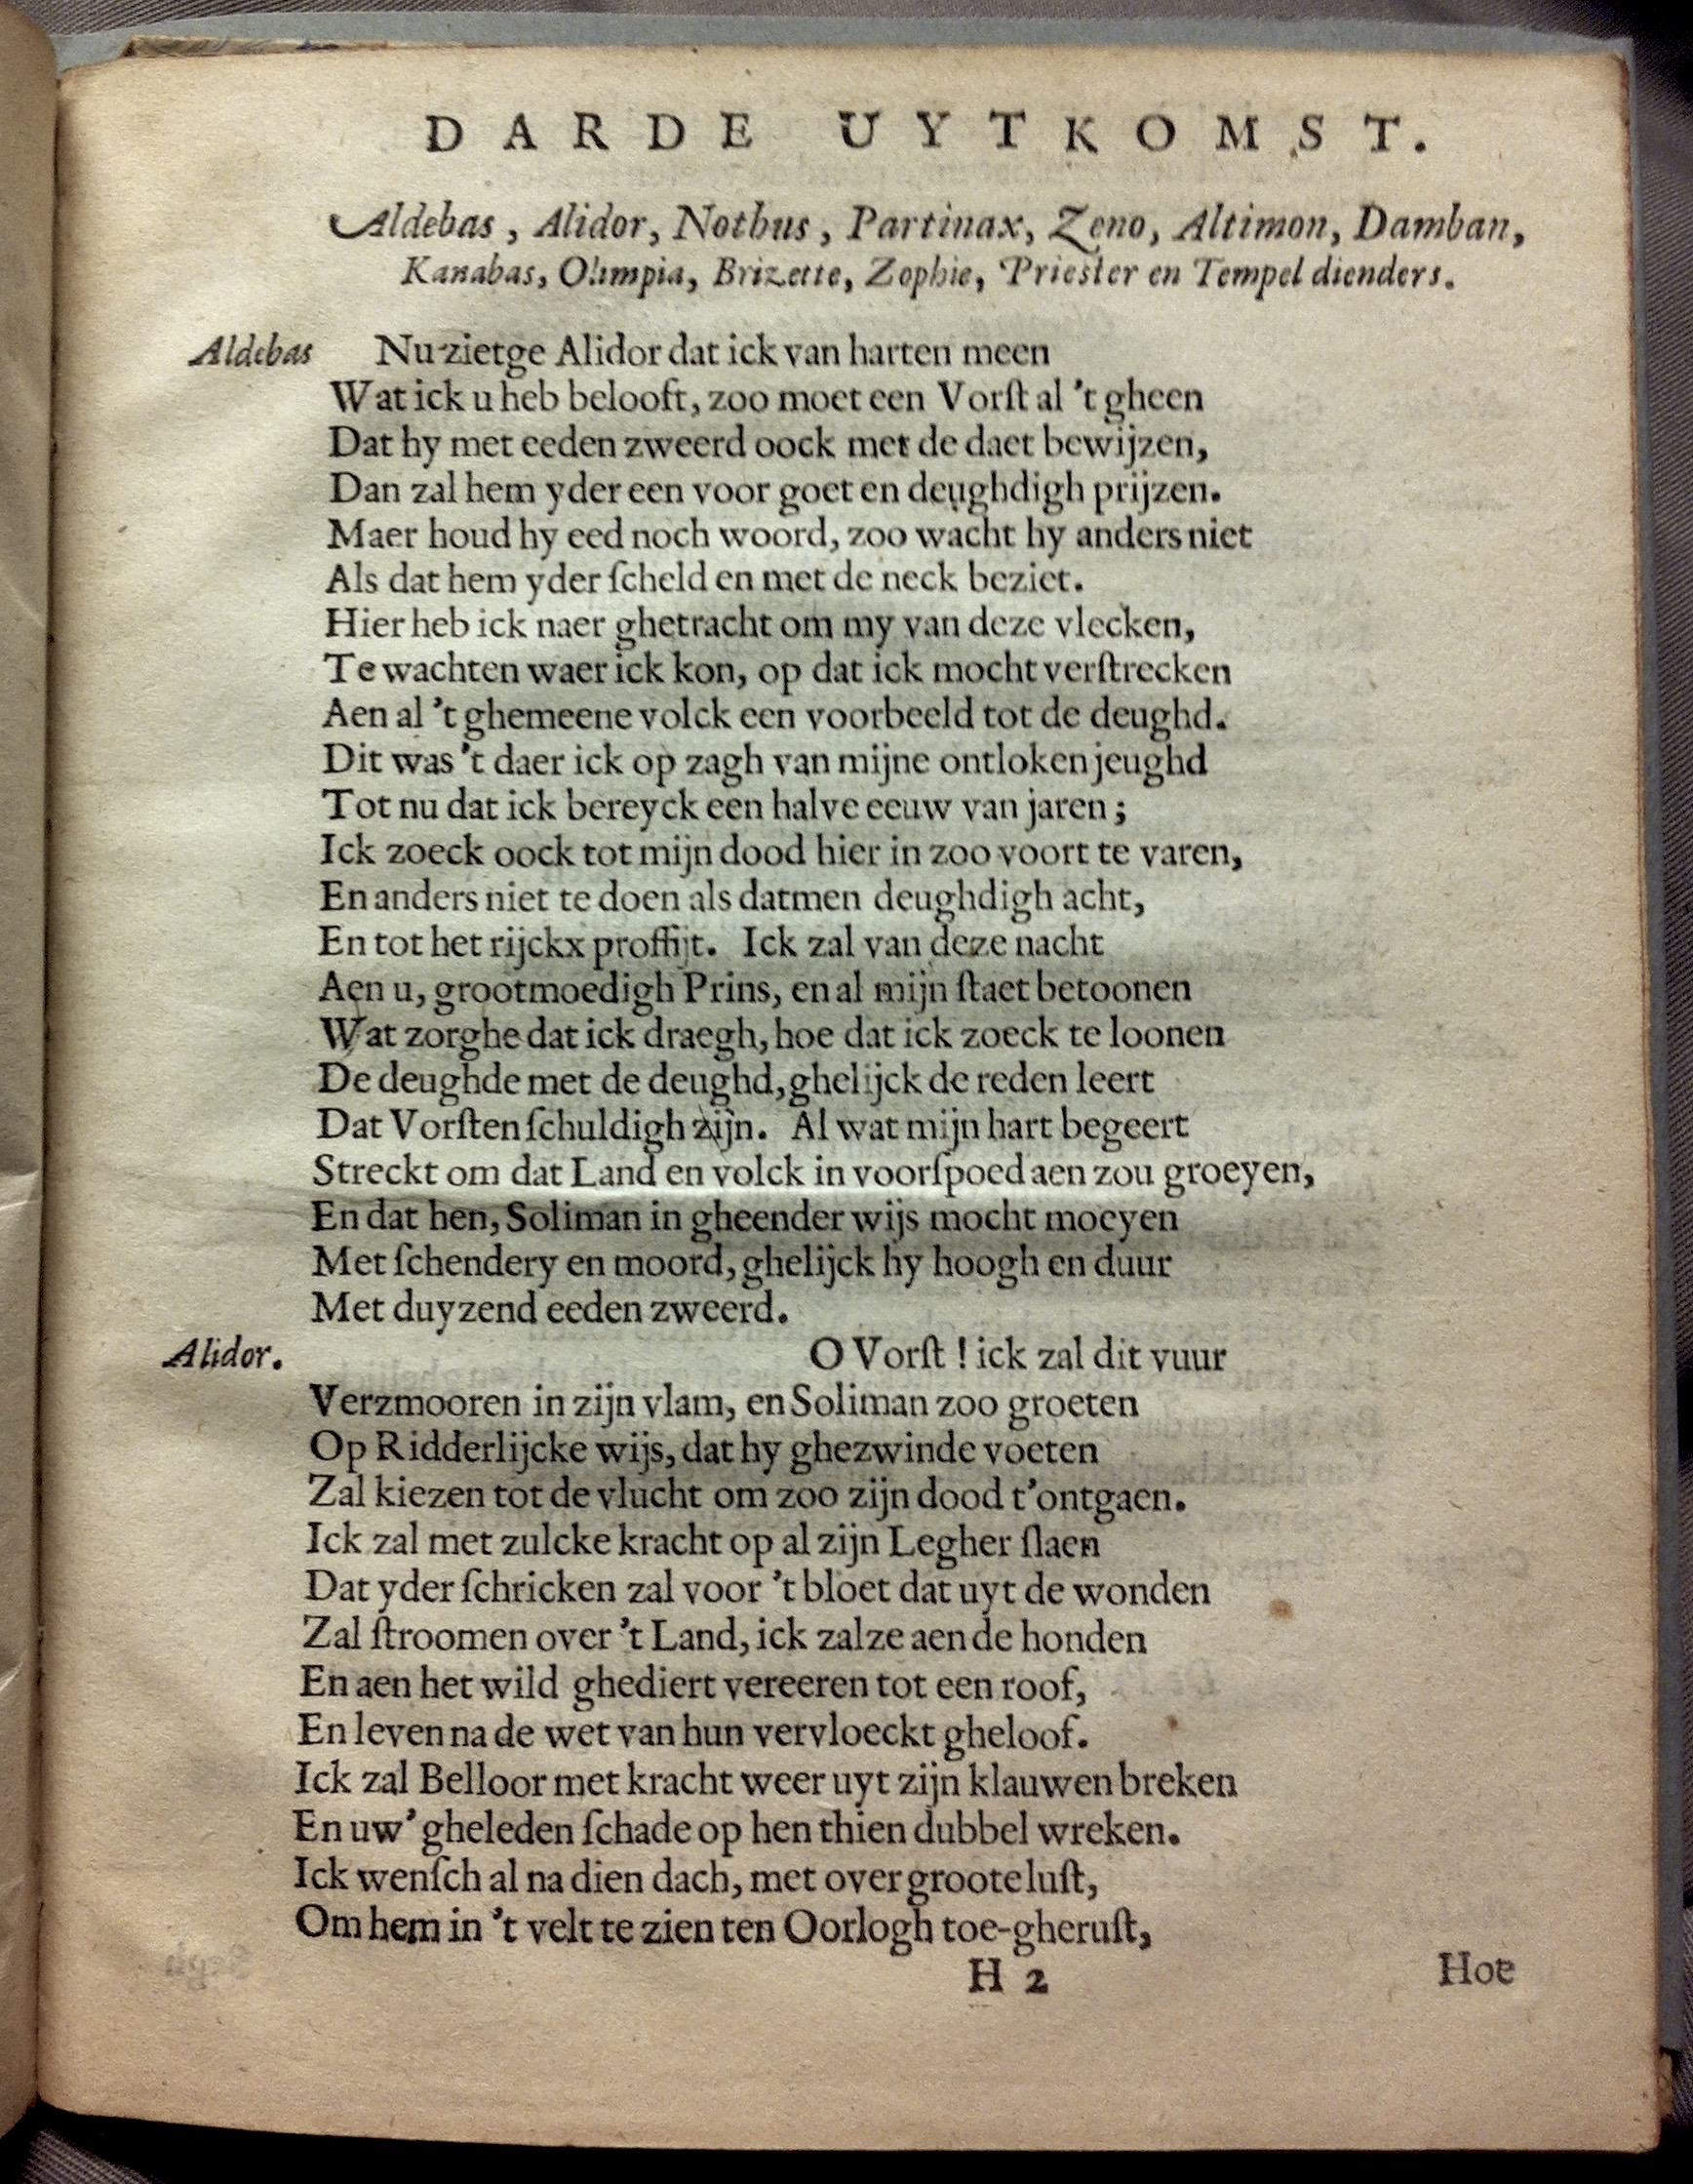 DARDE UYTKOMST.
Aldebas, Alidor, Nothus, Partinax, Zeno, Altimon, Damban,
Kanabas, Olimpia, Brizette, Zophie, Priester en Tempel dienders.
Aldebas Nu zietge Alidor dat ick van harten meen
Wat ick u heb belooft, zoo moet een Vorſt al 't gheen
Dat hy met eeden zweerd oock met de daet bewijzen,
Dan zal hem yder een voor goet en deughdigh prijzen.
Maer houd hy eed noch woord, zoo wacht hy anders niet
Als dat hem yder ſcheld en met de neck beziet.
Hier heb ick naer ghetracht om my van deze vlecken,
Te wachten waer ick kon, op dat ick mocht verſtrecken
Aen al 't ghemeene volck een voorbeeld tot de deughd.
Dit was 't daer ick op zagh van mijne ontloken jeughd
Tot nu dat ick bereyck een halve eeuw van jaren;
Ick zoeck oock tot mijn dood hier in zoo voort te varen,
En anders niet te doen als datmen deughdigh acht,
En tot het rijckx proffijt. Ick zal van deze nacht
Aen u, grootmoedigh Prins, en al mijn ſtaet betoonen
Wat zorghe dat ick draegh, hoe dat ick zoeck te loonen
De deughde met de deughd, ghelijck de reden leert
Dat Vorſten ſchuldigh zijn. Al wat mijn hart begeert
Streckt om dat Land en volck in voorſpoed aen zou groeyen,
En dat hen, Soliman in gheender wijs mocht moeyen
Met ſchendery en moord, ghelijck hy hoogh en duur
Met duyzend eeden zweerd.
Alidor. O Vorſt! ick zal dit vuur
Verzmooren in zijn vlam, en Soliman zoo groeten
Op Ridderlijcke wijs, dat hy ghezwinde voeten
Zal kiezen tot de vlucht om zoo zijn dood t'ontgaen.
Ick zal met zulcke kracht op al zijn Legher ſlaen
Dat yder ſchricken zal voor 't bloet dat uyt de wonden
Zal ſtroomen over 't Land, ick zalze aen de honden
En aen het wild ghediert vereeren tot een roof,
En leven na de wet van hun vervloeckt gheloof.
Ick zal Belloor met kracht weer uyt zijn klauwen breken
En uw' gheleden ſchade op hen thien dubbel wreken.
Ick wenſch al na dien dach, met over groote luſt,
Om hem in 't velt te zien ten Oorlogh toe-gheruſt,
H 2
Hoe